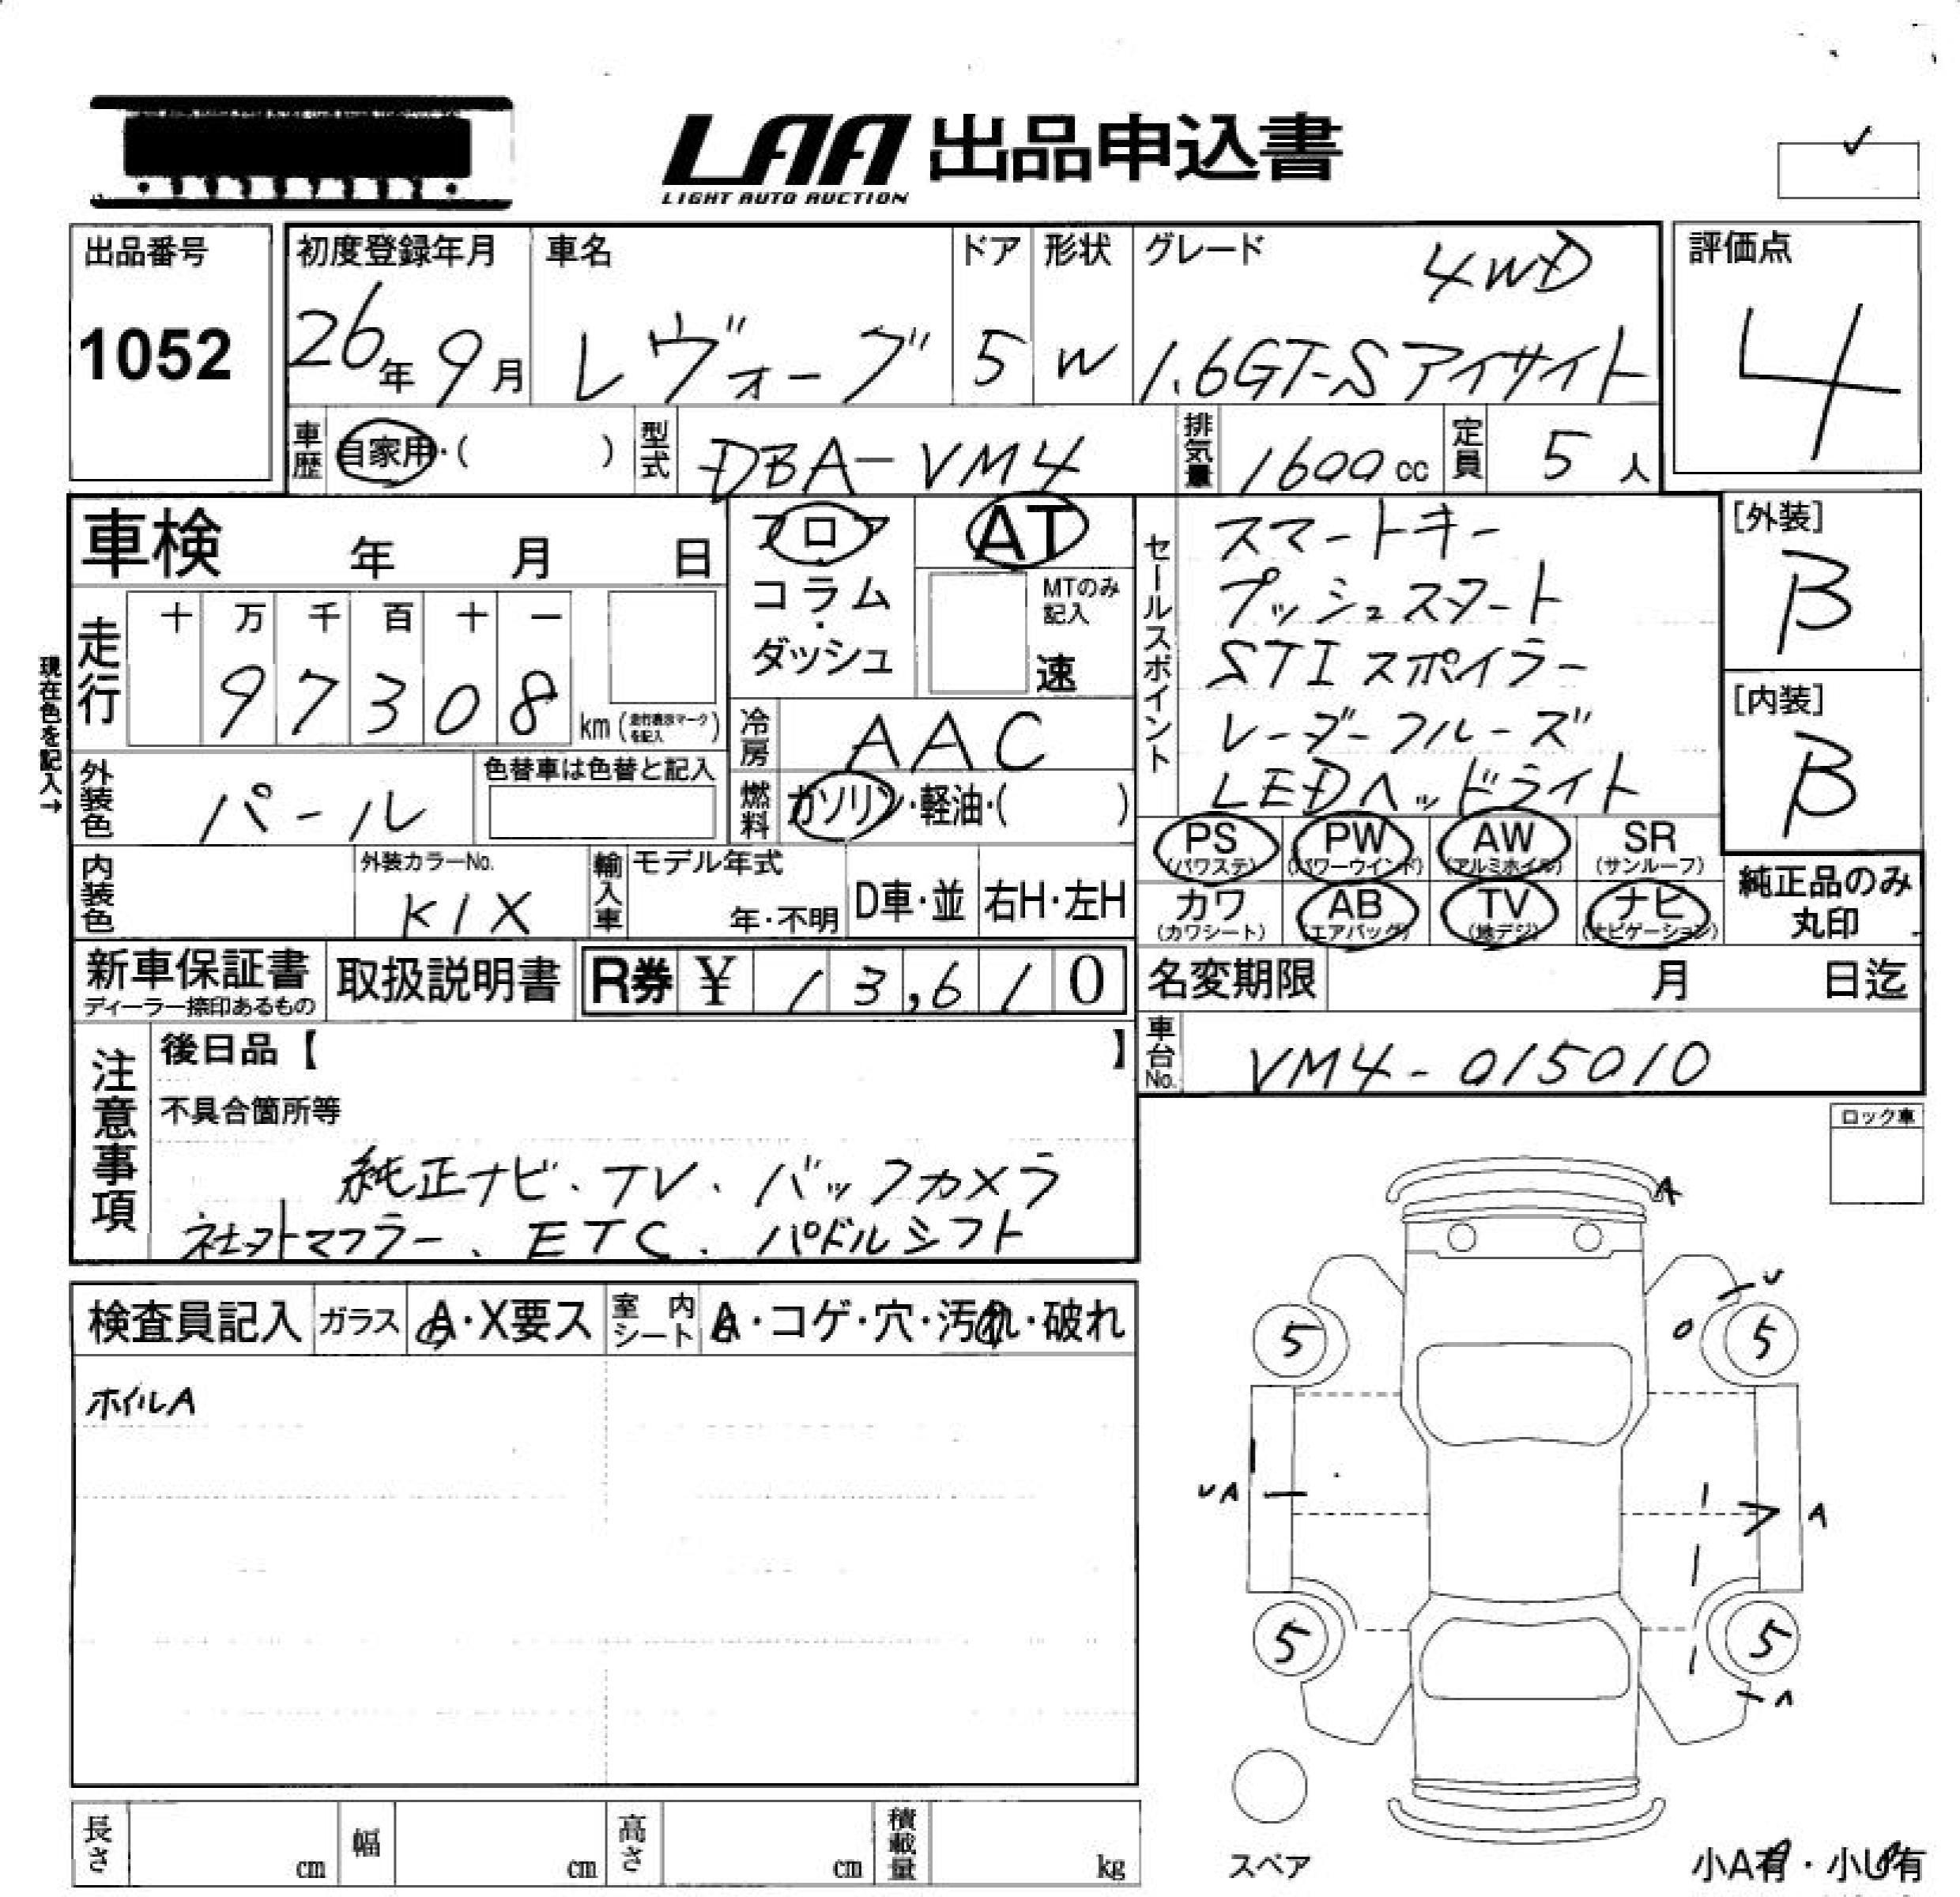 LAA 出品申込書
LIGHT AUTO AUCTION
出品番号
1052
初度登録年月
26年 9月
車名
レヴォーグ
ドア
5
形状
W
グレード
4WD
1.6GT-S アイサイト
評価点
4
車歴 自家用・( )
型式 DBA-VM4
排気量 1600cc
定員 5人
車検 年 月 日
フロア
コラム
ダッシュ
AT
MTのみ記入
速
セールスポイント
スマートキー
プッシュスタート
STIスポイラー
レーダークルーズ
LEDヘッドライト
[外装]
B
[内装]
B
現在色を記入→
走行 十 万 千 百 十 一
97308 km (走行表示マークを記入)
冷房 AAC
燃料 ガソリン・軽油・( )
外装色 パール
色替車は色替と記入
内装色
外装カラーNo.
K1X
輸入車
モデル年式
年・不明
D車・並
右H・左H
PS (パワステ)
PW (パワーウインド)
AW (アルミホイル)
SR (サンルーフ)
カワ (カワシート)
AB (エアバッグ)
TV (地デジ)
ナビ (ナビゲーション)
純正品のみ
丸印
新車保証書
ディーラー捺印あるもの
取扱説明書
R券 ¥ 13,610
名変期限 月 日迄
車台No. VM4-015010
注意事項
後日品【 】
不具合箇所等
純正ナビ、TV、バックカメラ
社外マフラー、ETC、パドルシフト
ロック車
検査員記入
ガラス A・X要ス
室内シート A・コゲ・穴・汚れ・破れ
ホイルA
A
U
5
5
UA
A
5
5
A
スペア
小A有・小U有
長さ cm
幅 cm
高さ cm
積載量 kg